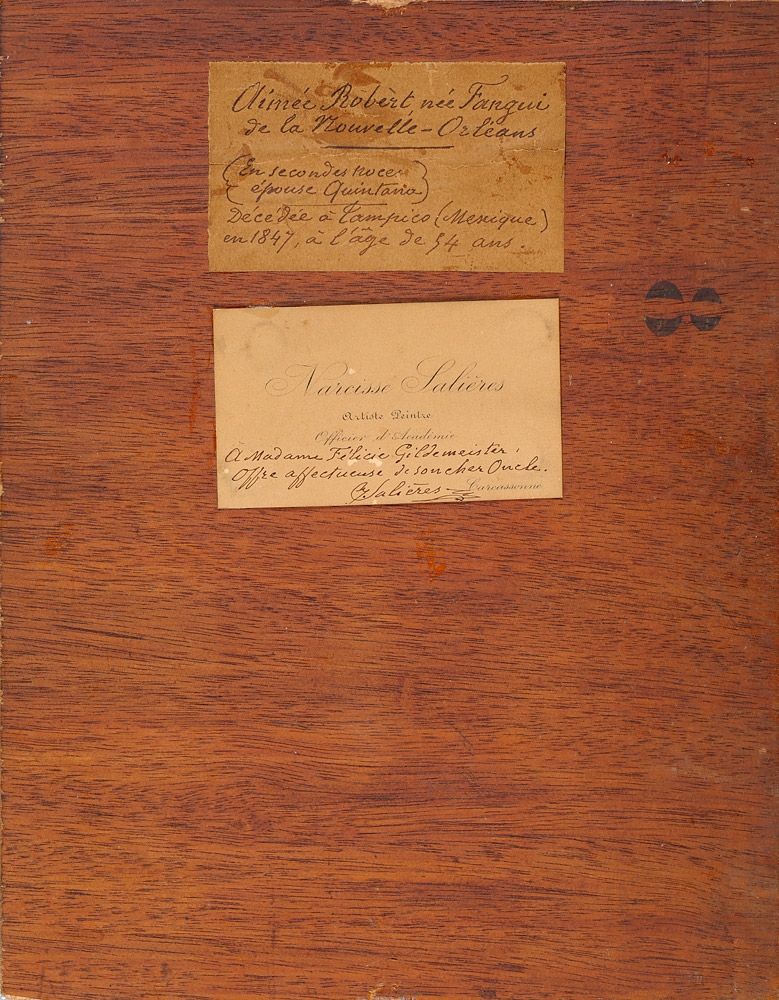 Aimée Robert, née Tangui
de la Nouvelle-Orléans
(En secondes noces
épouse Quintana)
Décédée à Tampico (Mexique)
en 1847, à l'âge de 54 ans.
Narcisse Salières
Artiste Peintre
Officier d'Académie
À Madame Félicie Gildemeister,
Offre affectueuse de son cher Oncle.
Salières
Carcassonne